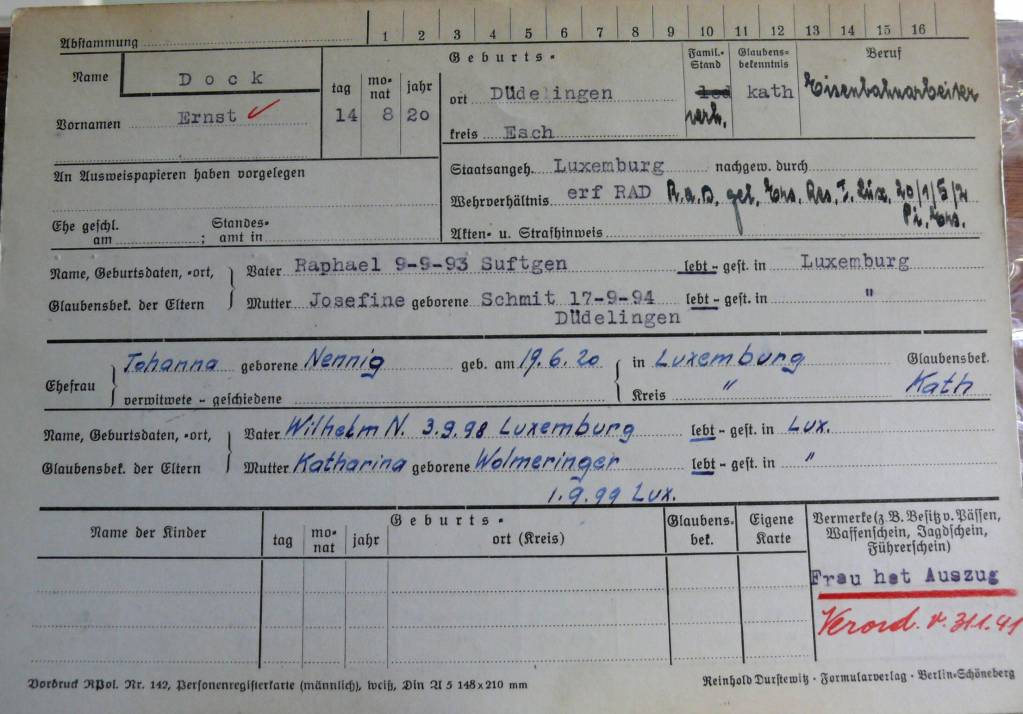 Abstammung 1 2 3 4 5 6 7 8 9 10 11 12 13 14 15 16
Name Dock
Vornamen Ernst
tag monat jahr
14 8 20
Geburts-
ort Düdelingen
kreis Esch
Famil.-Stand led verh.
Glaubensbekenntnis kath
Beruf Eisenbahnarbeiter
An Ausweispapieren haben vorgelegen
Ehe geschl. am ; Standesamt in
Staatsangeh. Luxemburg nachgew. durch
Wehrverhältnis erf RAD R.a.D. gel. Ers. Res. I. Lux. 20/1/5/2
Pi. Ers.
Akten- u. Strafhinweis
Name, Geburtsdaten, -ort, Glaubensbek. der Eltern
Vater Raphael 9-9-93 Suftgen lebt - gest. in Luxemburg
Mutter Josefine geborene Schmit 17-9-94 lebt - gest. in "
Düdelingen
Ehefrau Johanna geborene Nennig geb. am 19.6.20 in Luxemburg Glaubensbek.
verwitwete - geschiedene Kreis " Kath
Name, Geburtsdaten, -ort, Glaubensbek. der Eltern
Vater Wilhelm N. 3.9.98 Luxemburg lebt - gest. in Lux.
Mutter Katharina geborene Wolmeringer lebt - gest. in "
1.9.99 Lux.
Name der Kinder
Geburts-
tag monat jahr ort (Kreis)
Glaubensbek.
Eigene Karte
Vermerke (z. B. Besitz v. Pässen,
Waffenschein, Jagdschein,
Führerschein)
Frau hat Auszug
Verord. v. 31.1.41
Vordruck RPol. Nr. 142, Personenregisterkarte (männlich), weiß, Din A 5 148x210 mm
Reinhold Durstewitz · Formularverlag · Berlin-Schöneberg